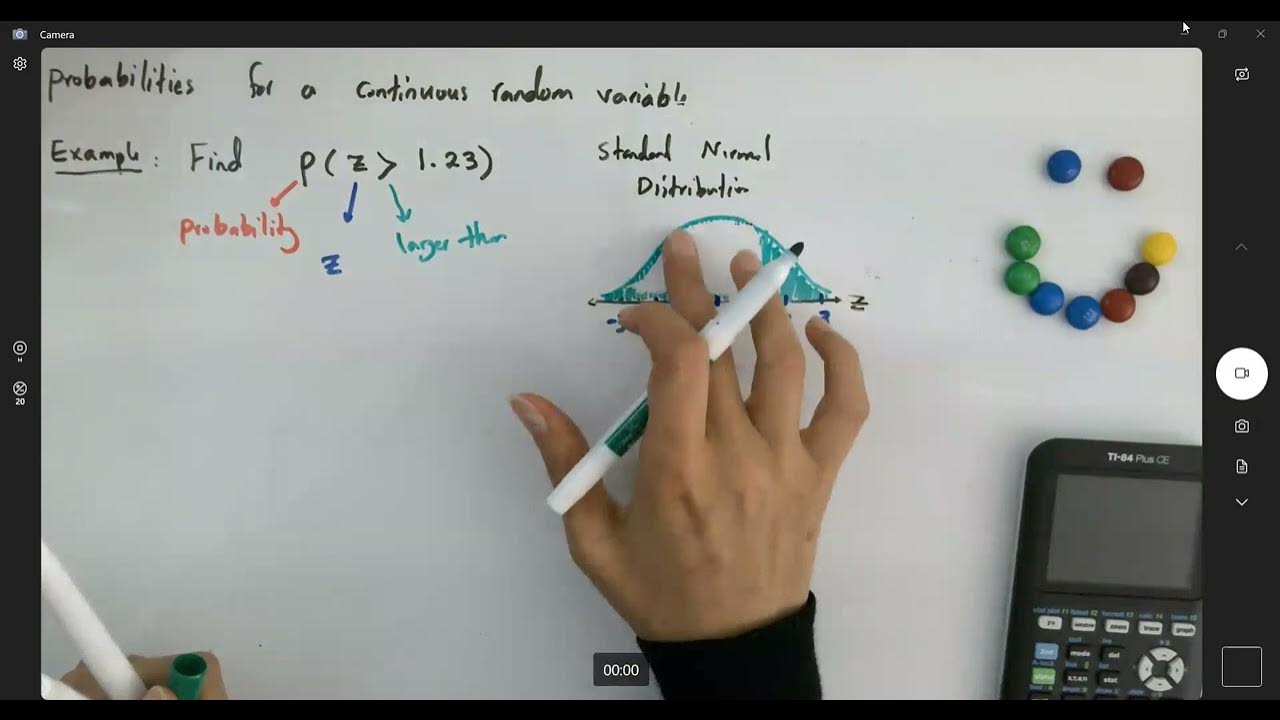 Camera
probabilities for a continuous random variable
Example: Find P(z > 1.23)
Standard Normal
Distribution
probability
z
larger than
z
-3
3
TI-84 Plus CE
mode
del
X,T,θ,n
stat
2nd
alpha
y=
window
zoom
trace
graph
A-lock
20
00:00